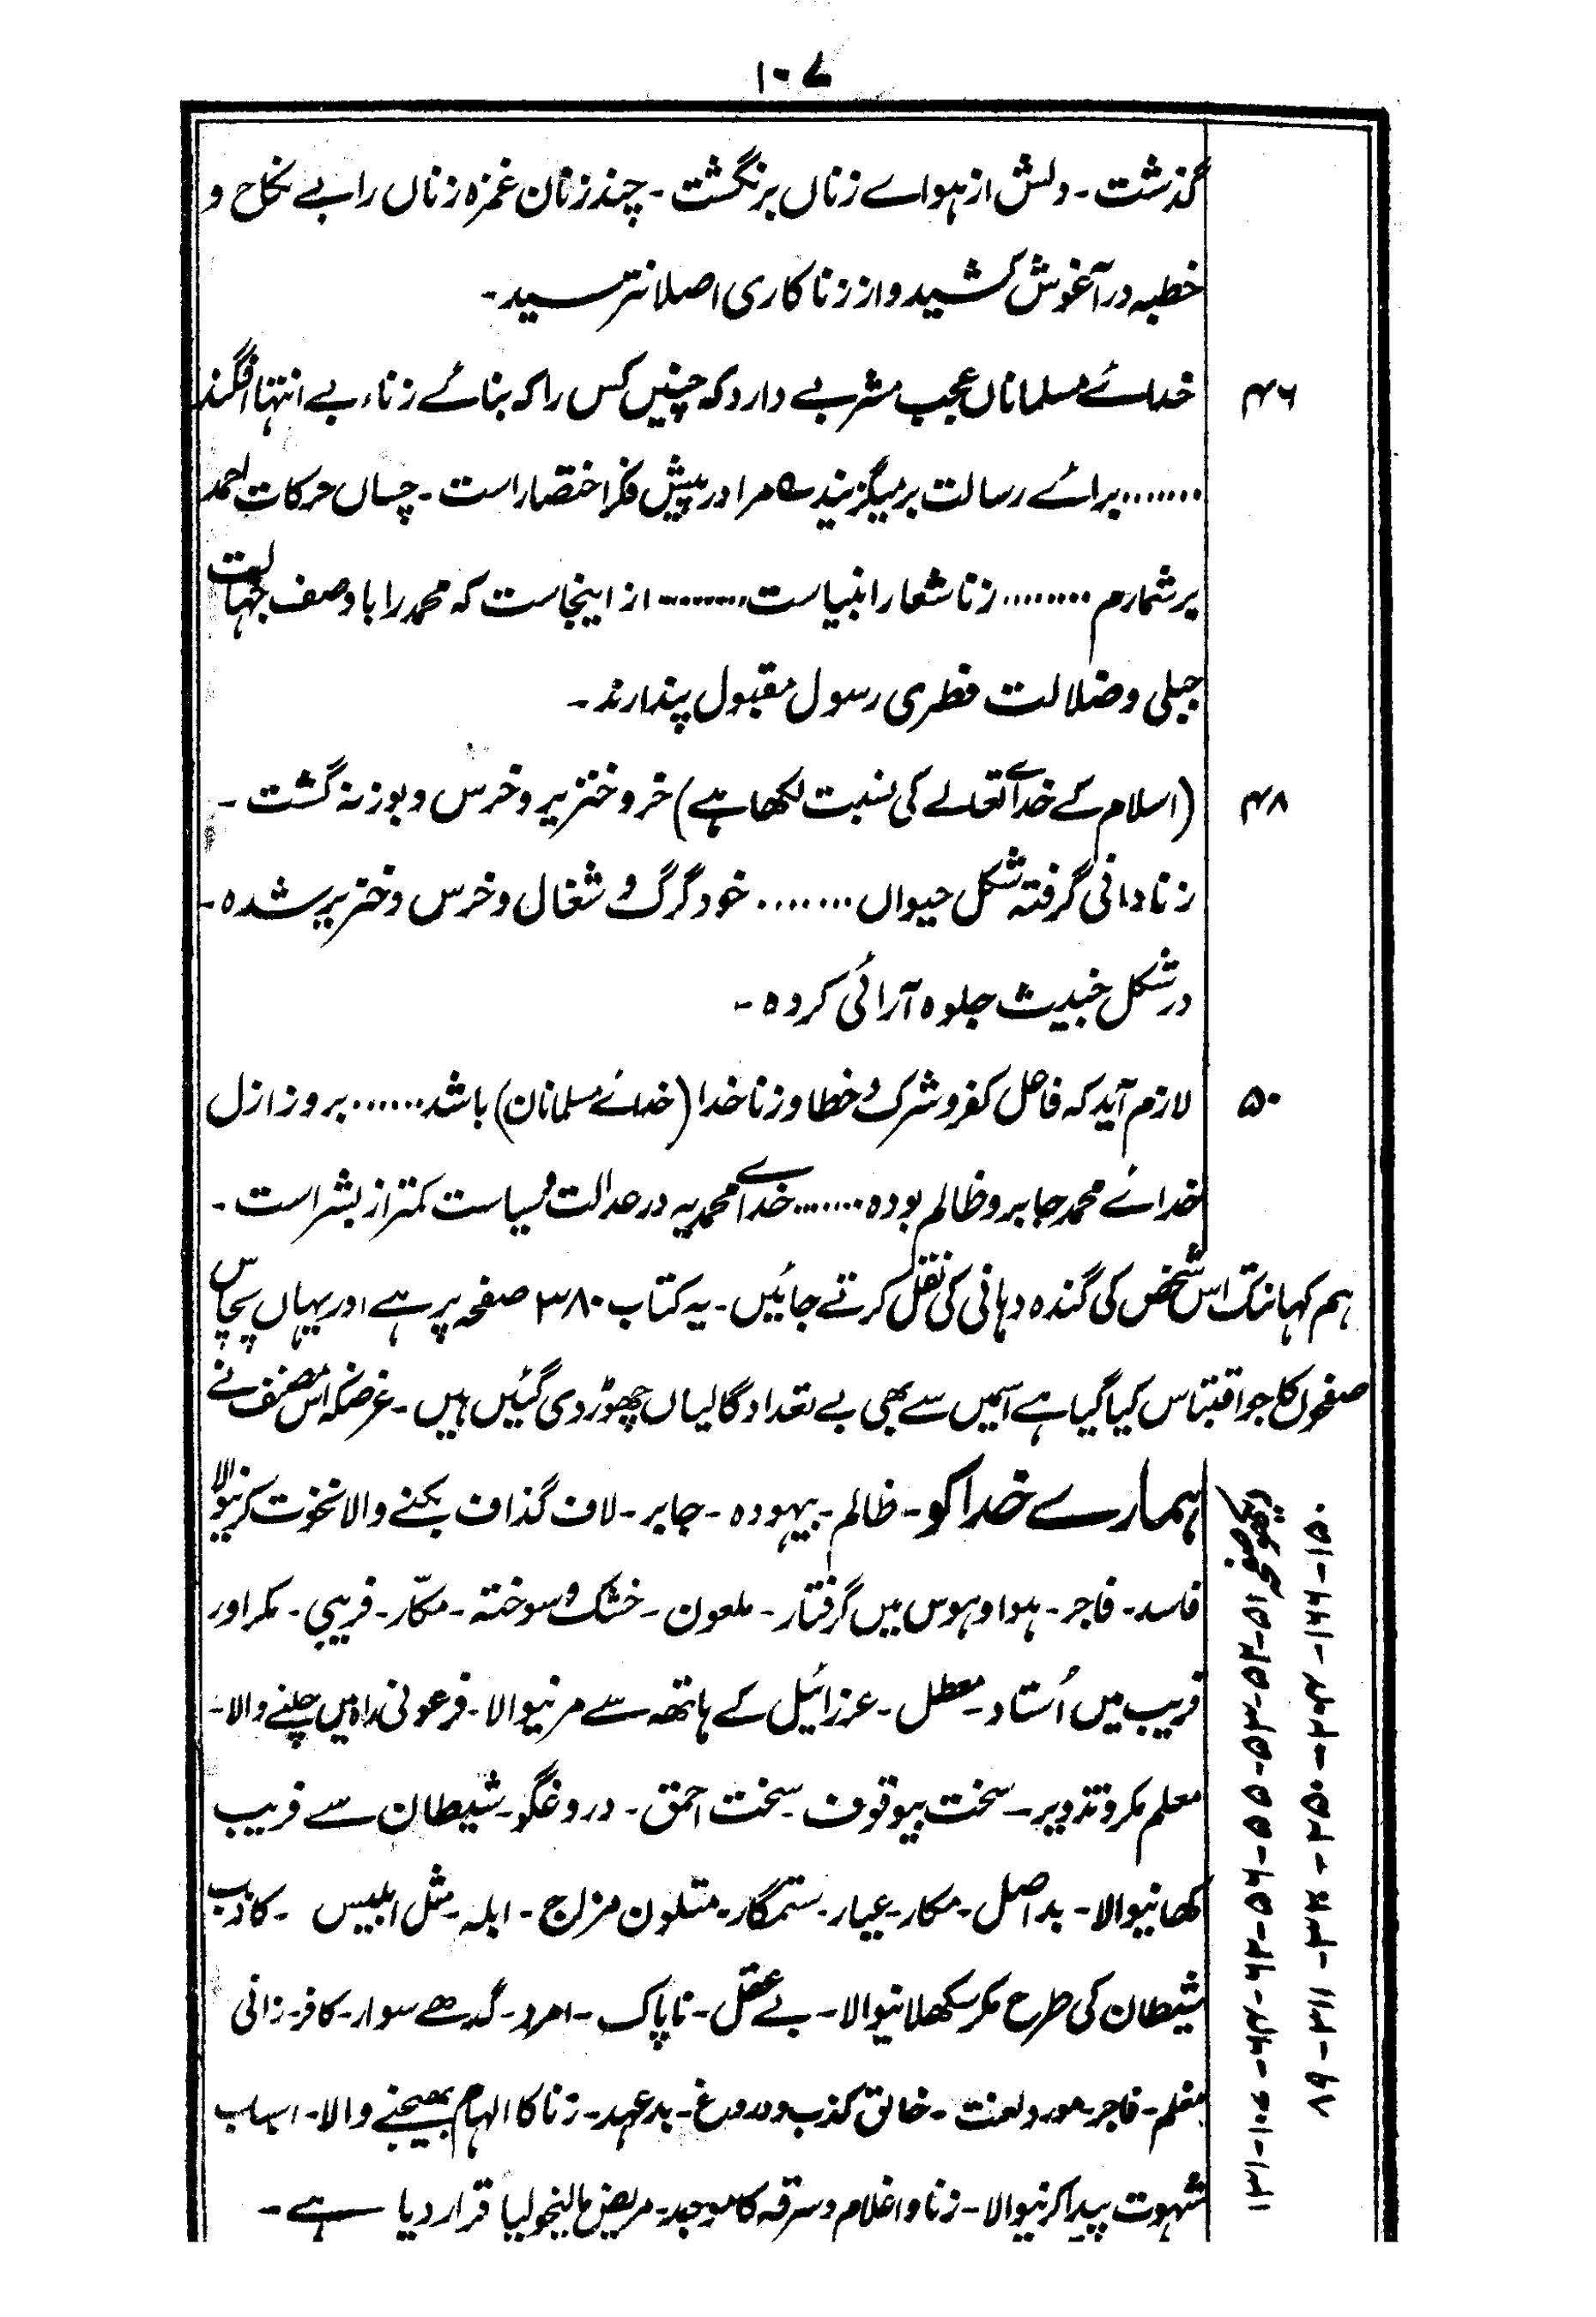 ۱۰۷
گذشت۔ دلش از ہوائے زناں برنگشت۔ چند زنان غمزہ زناں را بے نکاح و
خطبہ در آغوش کشید و از زنا کاری اصلا نترسید۔
۴۶ خدائے مسلماناں عجب مشربے دارد کہ چنیں کس را کہ بنائے زناء بے انتہا افگند
....... برائے رسالت برمیگزیند مرا در پیش فکر اختصار است۔ چساں حرکات احمد
برشمارم ........ زنا شعار انبیاست ........ از اینجاست کہ محمد را با وصف جہالت
جبلی و ضلالت فطری رسول مقبول پندارند۔
۴۸ (اسلام کے خدائے تعالے کی نسبت لکھا ہے) خر و خنزیر و خرس و بوزنہ گشت۔
ز نادانی گرفتہ شکل حیواں ....... خود گرگ و شغال و خرس و خنزیر شدہ۔
در شکل خبیث جلوہ آرائی کردہ۔
۵۰ لازم آید کہ فاعل کفر و شرک و خطا و زنا خدا (خدائے مسلمانان) باشد ...... بروز ازل
خدائے محمد جابر و ظالم بودہ ....... خدائے محمدیہ در عدالت و سیاست کمتر از بشر است۔
ہم کہانتک اس شخص کی گندہ دہانی کی نقل کرتے جائیں۔ یہ کتاب ۳۸۰ صفحہ پر ہے اور یہاں پچاس
صفحوں کا جو اقتباس کیا گیا ہے اسمیں سے بھی بے تعداد گالیاں چھوڑ دی گئیں ہیں۔ غرضکہ اس مصنف نے
ہمارے خدا کو۔ ظالم۔ بیہودہ۔ جابر۔ لاف گذاف بکنے والا نخوت کرنیوالا
فاسد۔ فاجر۔ ہوا و ہوس میں گرفتار۔ ملعون۔ خشک و سوختہ۔ مکّار۔ فریبی۔ مکر اور
فریب میں اُستاد۔ معطل۔ عزرائیل کے ہاتھ سے مرنیوالا۔ فرعونی راہ میں چلنے والا۔
معلم مکر و تزویر۔ سخت بیوقوف۔ سخت احمق۔ دروغگو۔ شیطان سے فریب
کھانیوالا۔ بد اصل۔ مکار۔ عیار۔ ستمگار۔ متلون مزاج۔ ابلہ۔ مثل ابلیس۔ کاذب
شیطان کی طرح مکر سکھلانیوالا۔ بے عقل۔ ناپاک۔ امرد۔ گدھے سوار۔ کافر۔ زانی
مغلم۔ فاجر۔ مورد لعنت۔ خالق کذب و دروغ۔ بدعہد۔ زنا کا الہام بھیجنے والا۔ اسباب
شہوت پیدا کرنیوالا۔ زنا و اغلام و سرقہ کا موجد۔ مریض مالیخولیا قرار دیا ہے۔
دیکھو صفحہ ۵۱-۵۲-۵۳-۵۵-۵۶-۶۲-